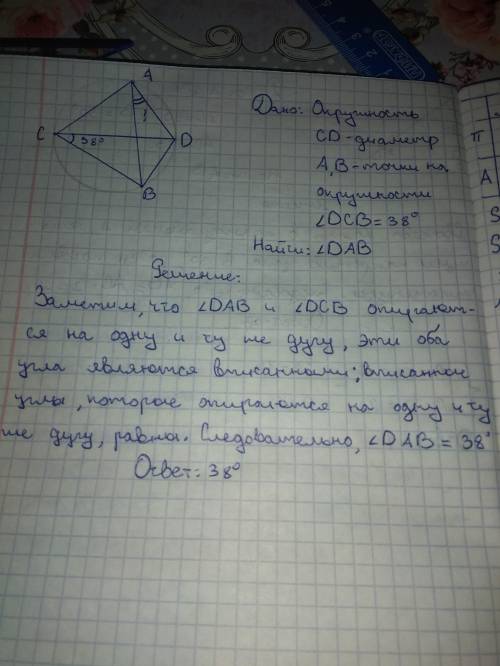 A
C
38°
1
D
B
Дано: Окружность
CD-диаметр
A,B-точки на
окружности
∠DCB=38°
Найти: ∠DAB
Решение:
Заметим, что ∠DAB и ∠DCB опирают-
ся на одну и ту же дугу, эти оба
угла являются вписанными; вписанные
углы, которые опираются на одну и ту
же дугу, равны. Следовательно, ∠DAB = 38°
Ответ: 38°
П
А
S
S